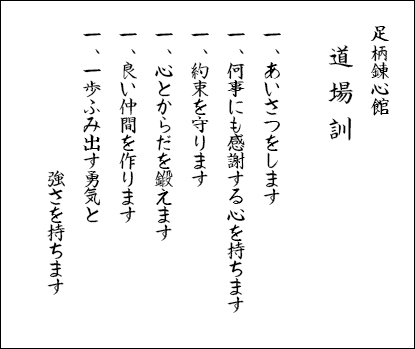 足柄錬心館
道場訓
一、あいさつをします
一、何事にも感謝する心を持ちます
一、約束を守ります
一、心とからだを鍛えます
一、良い仲間を作ります
一、一歩ふみ出す勇気と
強さを持ちます